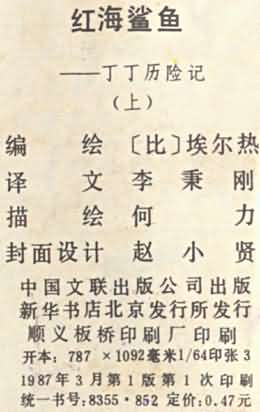 红海鲨鱼
——丁丁历险记
（上）
编 绘 〔比〕埃尔热
译 文 李秉刚
描 绘 何 力
封面设计 赵小贤
中国文联出版公司出版
新华书店北京发行所发行
顺义板桥印刷厂印刷
开本：787×1092毫米1/64印张3
1987年3月第1版第1次印刷
统一书号：8355·852 定价：0.47元